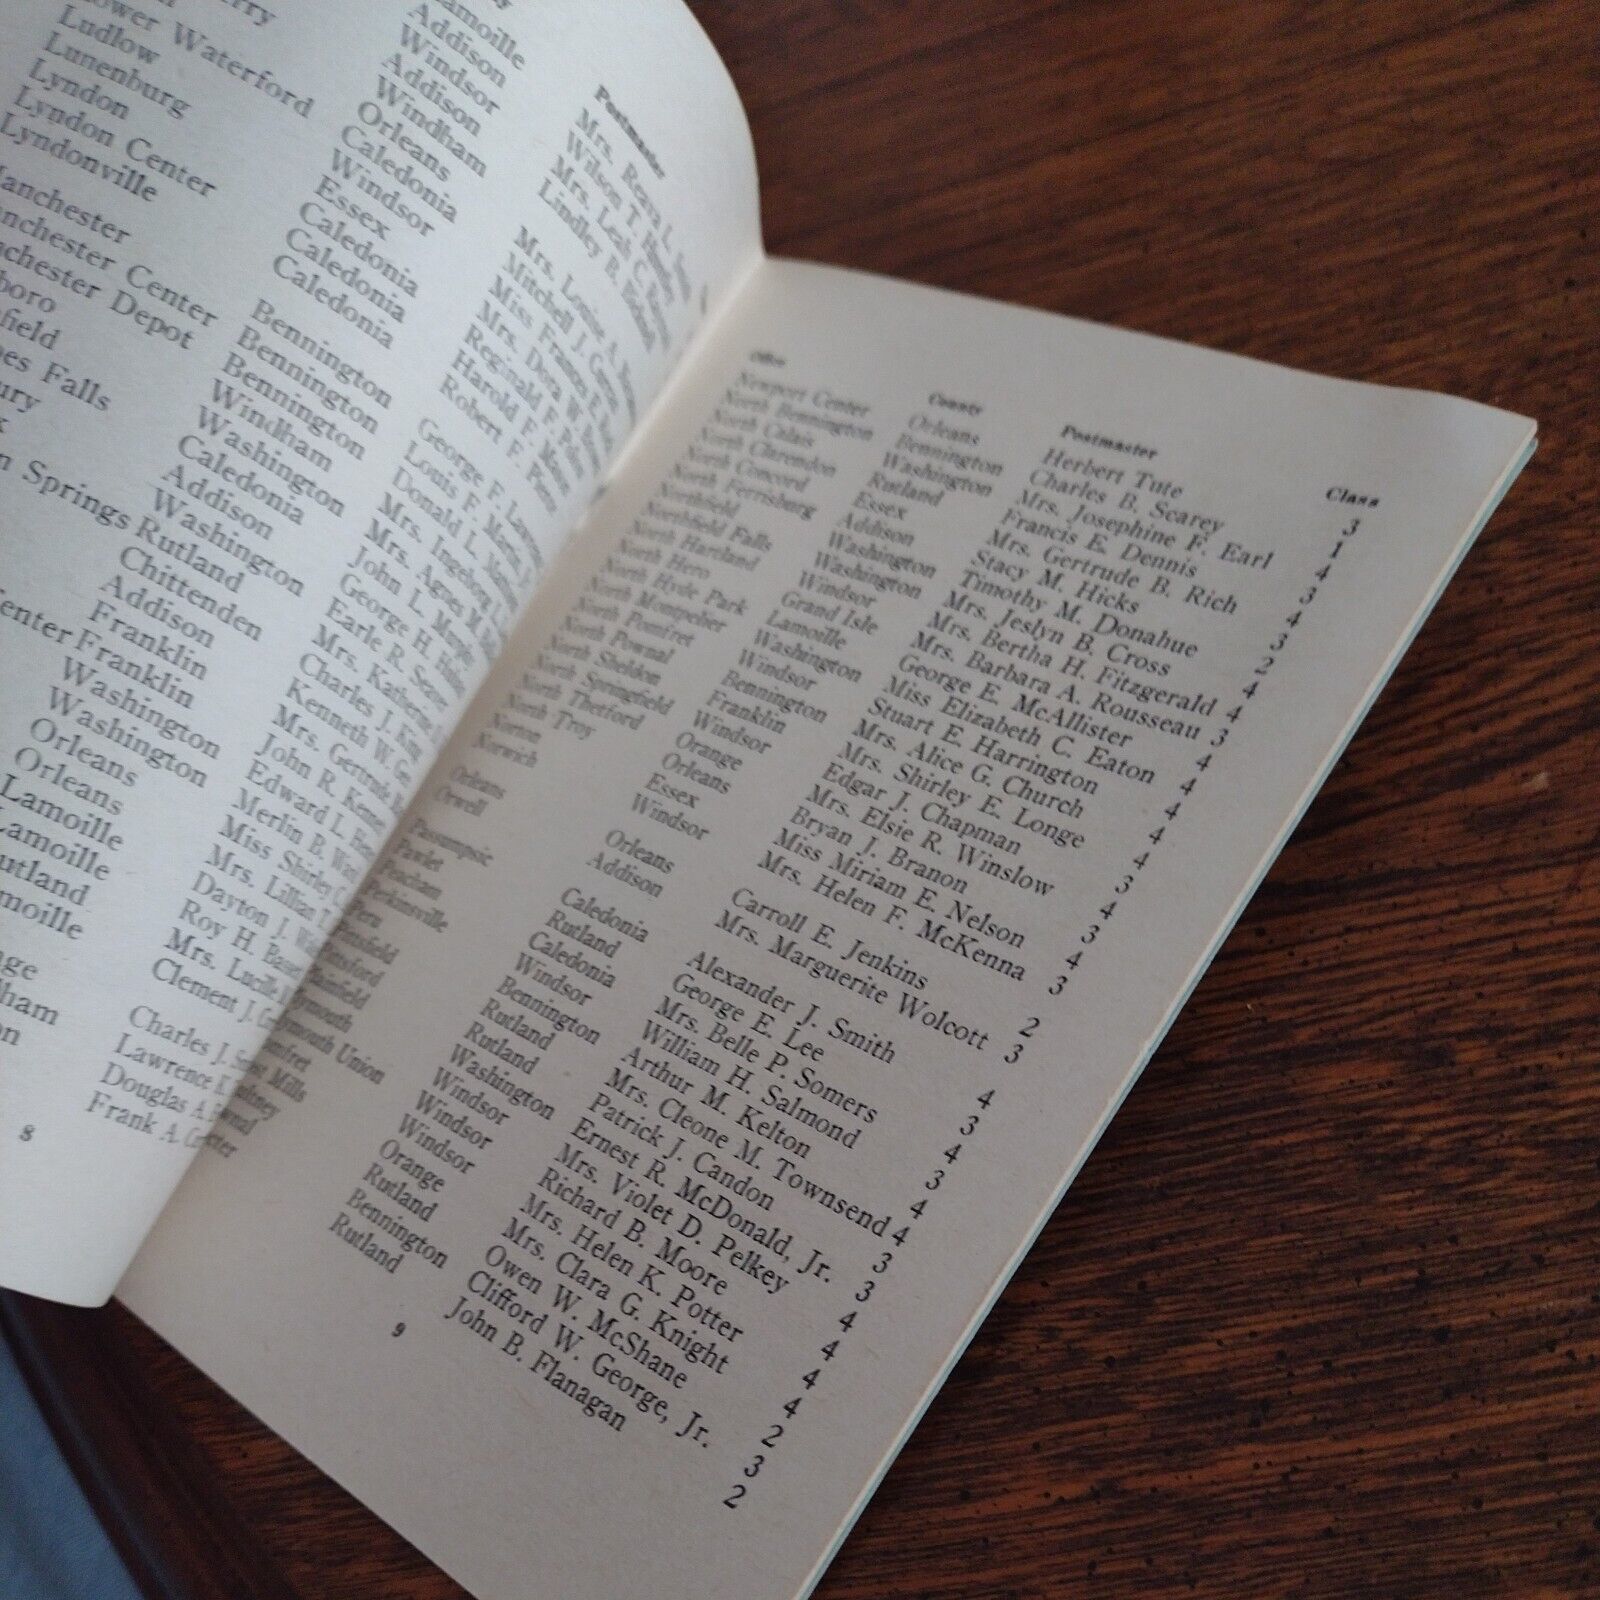 erry
Lamoille
Addison
Windsor
Addison
Postmaster
Mrs. Reava L.
Wilson T.
Mrs. Leah C.
Windham Lindley B.
Orleans Mrs. Louise A.
ower Waterford Caledonia Mitchell J.
Ludlow Windsor Miss Frances E.
Lunenburg Essex Mrs. Dora W.
Lyndon Caledonia Reginald F.
Lyndon Center Caledonia Harold F.
Lyndonville Caledonia Robert F. Pierce
anchester Bennington George F.
anchester Center Bennington Louis F. Martin,
chester Depot Bennington Donald L.
boro Windham Mrs. Ingeborg
field Washington Mrs. Agnes M.
oes Falls Caledonia John L. Murphy
ury Addison George H.
x Washington Earle R. Seaver
n Springs Rutland Mrs. Katherine
Chittenden Charles J. King
Addison Kenneth W.
Franklin Mrs. Gertrude
enter Franklin John R. Kenney
Washington Edward L.
Washington Merlin B.
Orleans Miss Shirley C.
Orleans Mrs. Lillian
Lamoille Dayton J.
amoille Roy H.
utland Mrs. Lucille
moille Clement J.
nge Charles J.
dham Lawrence
on Douglas A.
Frank A.
8
Office County Postmaster Class
Newport Center Orleans Herbert Tute 3
North Bennington Bennington Charles B. Scarey 1
North Calais Washington Mrs. Josephine F. Earl 4
North Clarendon Rutland Francis E. Dennis 3
North Concord Essex Mrs. Gertrude B. Rich 4
North Ferrisburg Addison Stacy M. Hicks 3
Northfield Washington Timothy M. Donahue 2
Northfield Falls Washington Mrs. Jeslyn B. Cross 4
North Hartland Windsor Mrs. Bertha H. Fitzgerald 4
North Hero Grand Isle Mrs. Barbara A. Rousseau 3
North Hyde Park Lamoille George E. McAllister 4
North Montpelier Washington Miss Elizabeth C. Eaton 4
North Pomfret Windsor Stuart E. Harrington 4
North Pownal Bennington Mrs. Alice G. Church 4
North Sheldon Franklin Mrs. Shirley E. Longe 4
North Springfield Windsor Edgar J. Chapman 3
North Thetford Orange Mrs. Elsie R. Winslow 4
North Troy Orleans Bryan J. Branon 3
Norton Essex Miss Miriam E. Nelson 4
Norwich Windsor Mrs. Helen F. McKenna 3
Orleans Orleans Carroll E. Jenkins 2
Orwell Addison Mrs. Marguerite Wolcott 3
Passumpsic Caledonia Alexander J. Smith 4
Pawlet Rutland George E. Lee 3
Peacham Caledonia Mrs. Belle P. Somers 4
Perkinsville Windsor William H. Salmond 3
Peru Bennington Arthur M. Kelton 4
Pittsfield Rutland Mrs. Cleone M. Townsend 4
Pittsford Rutland Patrick J. Candon 3
Plainfield Washington Ernest R. McDonald, Jr. 3
lymouth Windsor Mrs. Violet D. Pelkey 4
lymouth Union Windsor Richard B. Moore 4
omfret Windsor Mrs. Helen K. Potter 4
st Mills Orange Mrs. Clara G. Knight 4
ltney Rutland Owen W. McShane 2
wnal Bennington Clifford W. George, Jr. 3
cter Rutland John B. Flanagan 2
9